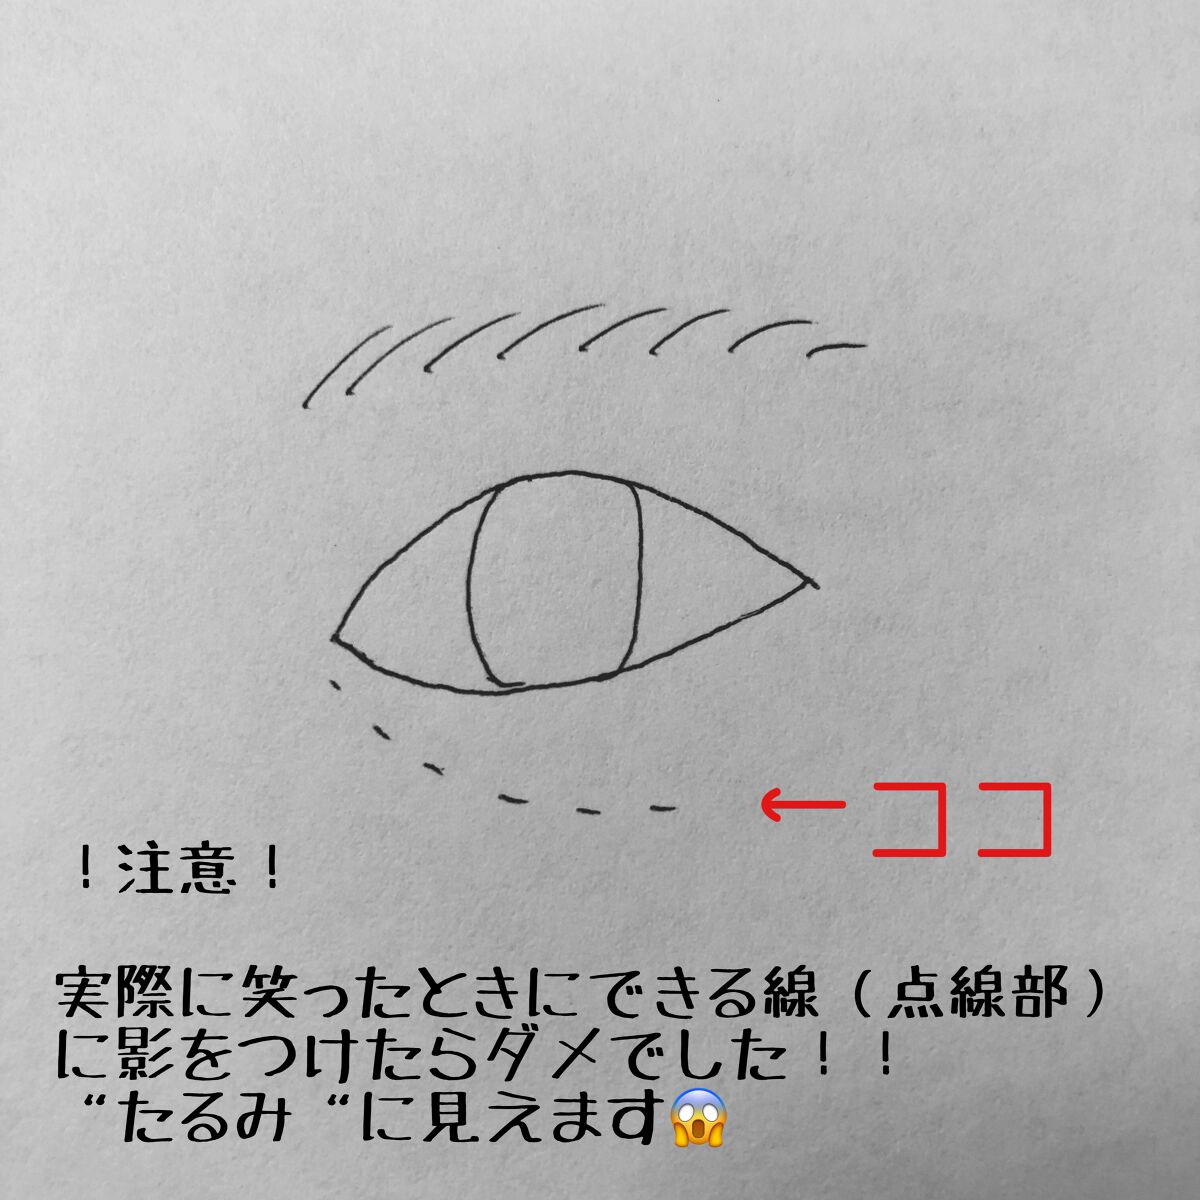 ←ココ
！注意！
実際に笑ったときにできる線（点線部）
に影をつけたらダメでした！！
“たるみ“に見えます😱